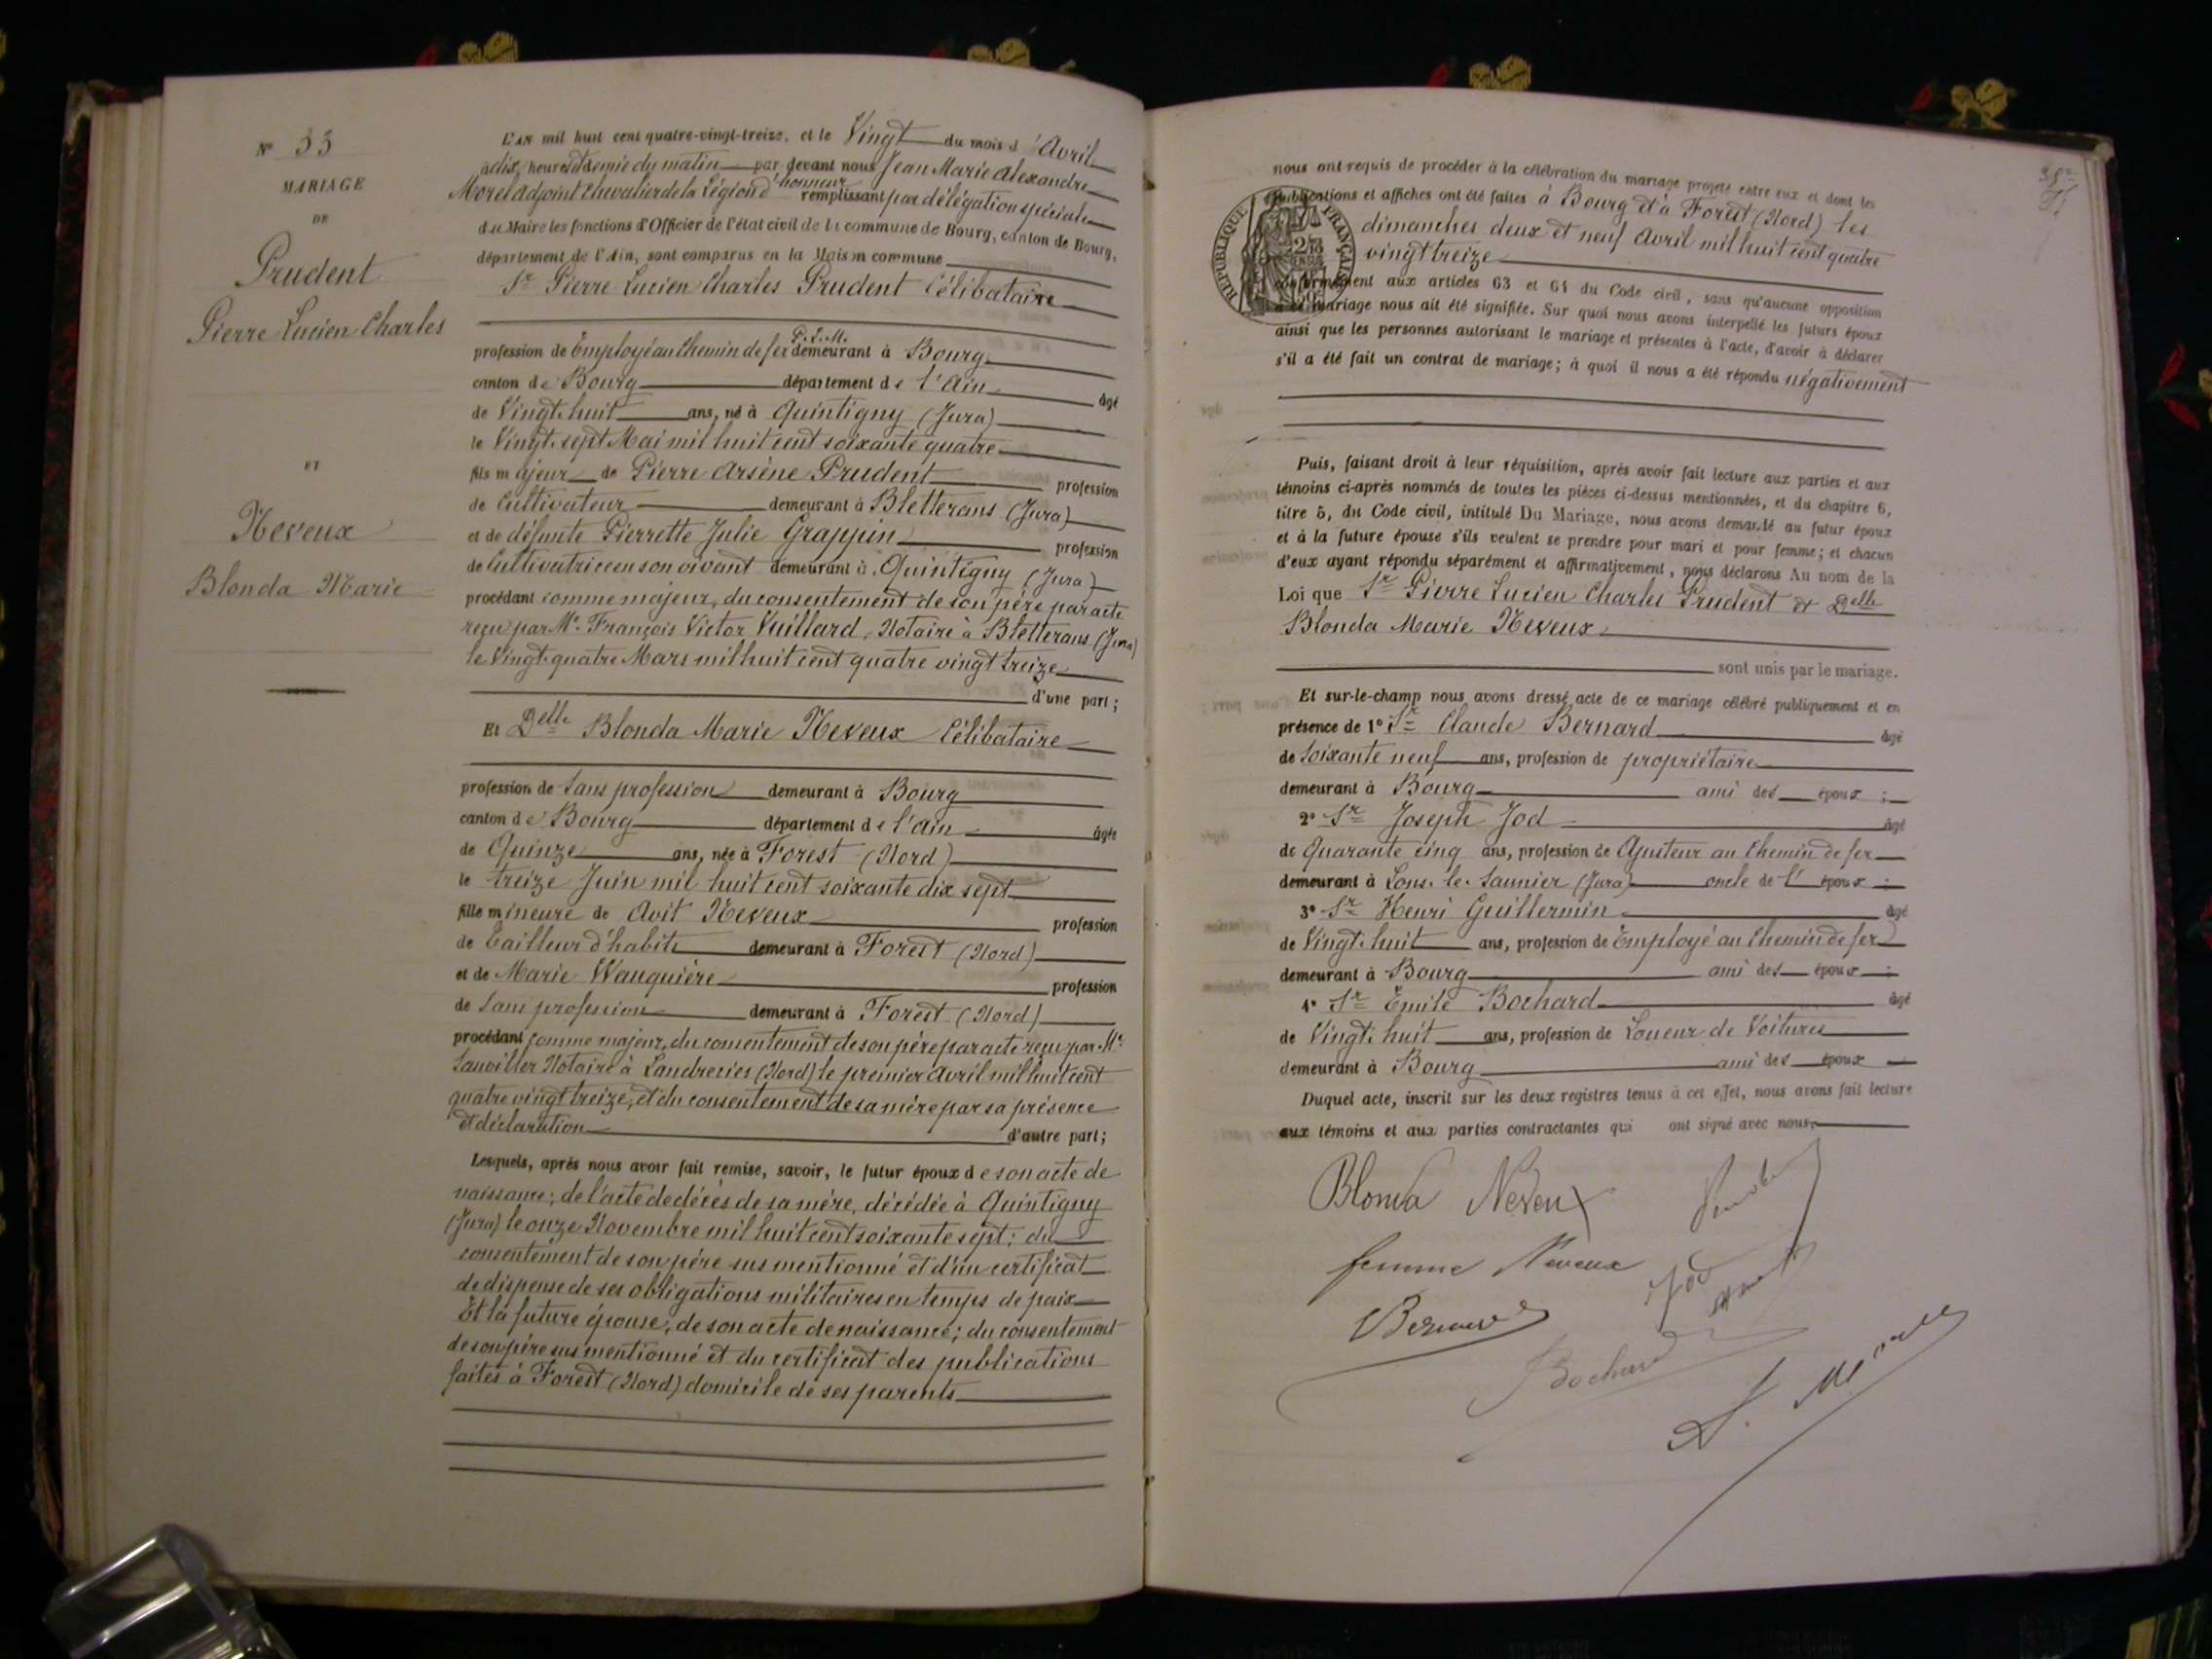 N° 33
MARIAGE
DE
Prudent
Pierre Lucien Charles
ET
Neveux
Blonda Marie
L'AN mil huit cent quatre-vingt-treize, et le Vingt du mois d'Avril
à dix heures et demie du matin par devant nous Jean Marie Alexandre
Morel adjoint Chevalier de la Légion d'honneur remplissant par délégation spéciale
du Maire les fonctions d'Officier de l'état civil de la commune de Bourg, canton de Bourg,
département de l'Ain, sont comparus en la Maison commune
Sr Pierre Lucien Charles Prudent Célibataire
profession de Employé au Chemin de fer P.L.M. demeurant à Bourg
canton de Bourg département de l'Ain âgé
de Vingt-huit ans, né à Quintigny (Jura)
le Vingt-sept Mai mil huit cent soixante quatre
fils majeur de Pierre Arsène Prudent profession
de Cultivateur demeurant à Bletterans (Jura)
et de défunte Pierrette Julie Grappin profession
de Cultivatrice en son vivant demeurant à Quintigny (Jura)
procédant comme majeur, du consentement de son père par acte
reçu par Me François Victor Vuillard, Notaire à Bletterans (Jura)
le Vingt-quatre Mars mil huit cent quatre vingt treize
d'une part;
Et Delle Blonda Marie Neveux Célibataire
profession de Sans profession demeurant à Bourg
canton de Bourg département de l'Ain âgée
de Quinze ans, née à Forest (Nord)
le treize Juin mil huit cent soixante dix sept
fille mineure de Avit Neveux profession
de Tailleur d'habits demeurant à Forest (Nord)
et de Marie Wauquière profession
de Sans profession demeurant à Forest (Nord)
procédant comme majeur, du consentement de son père par acte reçu par Me
Notaire à Landrecies (Nord) le premier Avril mil huit cent
quatre vingt treize, et du consentement de sa mère par sa présence
et déclaration d'autre part;
Lesquels, après nous avoir fait remise, savoir, le futur époux de son acte de
naissance; de l'acte de décès de sa mère, décédée à Quintigny
(Jura) le onze Novembre mil huit cent soixante sept; du
consentement de son père sus mentionné et d'un certificat
de dispense de ses obligations militaires en temps de paix
Et la future épouse, de son acte de naissance; du consentement
de son père sus mentionné et du certificat des publications
faites à Forest (Nord) domicile de ses parents
nous ont requis de procéder à la célébration du mariage projeté entre eux et dont les
publications et affiches ont été faites à Bourg et à Forest (Nord) les
dimanches deux et neuf Avril mil huit cent quatre
vingt treize
RÉPUBLIQUE FRANÇAISE
conformément aux articles 63 et 64 du Code civil, sans qu'aucune opposition
à ce mariage nous ait été signifiée. Sur quoi nous avons interpellé les futurs époux
ainsi que les personnes autorisant le mariage et présentes à l'acte, d'avoir à déclarer
s'il a été fait un contrat de mariage; à quoi il nous a été répondu négativement
Puis, faisant droit à leur réquisition, après avoir fait lecture aux parties et aux
témoins ci-après nommés de toutes les pièces ci-dessus mentionnées, et du chapitre 6,
titre 5, du Code civil, intitulé Du Mariage, nous avons demandé au futur époux
et à la future épouse s'ils veulent se prendre pour mari et pour femme; et chacun
d'eux ayant répondu séparément et affirmativement, nous déclarons Au nom de la
Loi que Sr Pierre Lucien Charles Prudent et Delle
Blonda Marie Neveux
sont unis par le mariage.
Et sur-le-champ nous avons dressé acte de ce mariage célébré publiquement et en
présence de 1° Sr Claude Bernard âgé
de Soixante neuf ans, profession de propriétaire
demeurant à Bourg ami des époux;
2° Sr Joseph Jod âgé
de Quarante cinq ans, profession de Ajusteur au Chemin de fer
demeurant à Lons-le-Saunier (Jura) oncle de l'époux;
3° Sr Henri Guillermin âgé
de Vingt-huit ans, profession de Employé au Chemin de fer
demeurant à Bourg ami des époux;
4° Sr Émile Bochard âgé
de Vingt-huit ans, profession de Loueur de Voitures
demeurant à Bourg ami des époux
Duquel acte, inscrit sur les deux registres tenus à cet effet, nous avons fait lecture
aux témoins et aux parties contractantes qui ont signé avec nous.
Blonda Neveux
femme Neveux
Jod
Bernard
Bochard